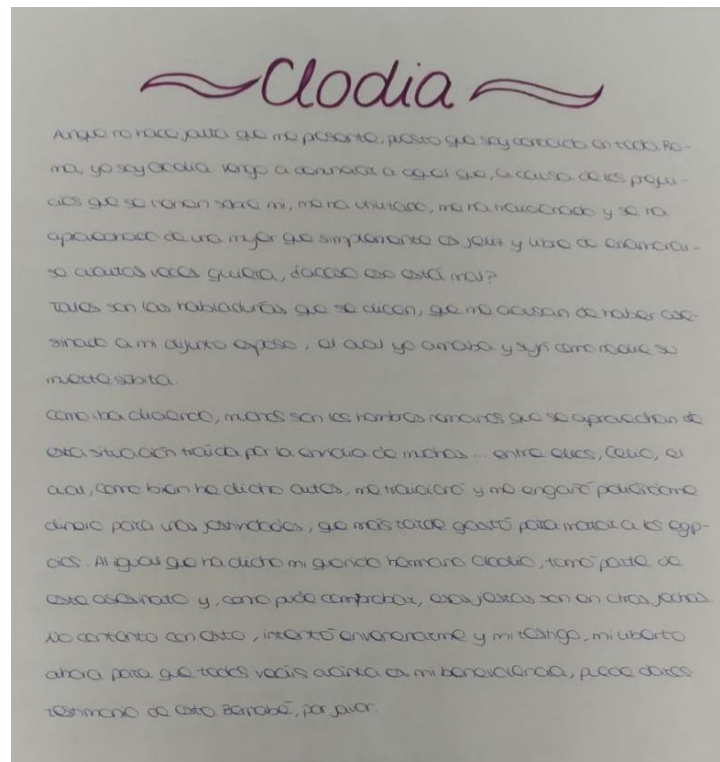 Clodia
Aunque no hace falta que me presente, puesto que soy conocida en toda Ro-
ma, yo soy Clodia. Vengo a denunciar a aquel que, a causa de los prejui-
cios que se tienen sobre mi, me ha utilizado, me ha traicionado y se ha
aprovechado de una mujer que simplemente es feliz y libre de enamorar-
se cuantas veces quiera, ¿acaso eso está mal?
Tales son las habladurías que se dicen, que me acusan de haber ase-
sinado a mi difunto esposo, el cual yo amaba y sufrí como nadie su
muerte súbita.
Como iba diciendo, muchos son los hombres romanos que se aprovechan de
esta situación traída por la envidia de muchos... entre ellos, Celio, el
cual, como bien he dicho antes, me traicionó y me engañó pidiéndome
dinero para unas festividades, que más tarde gastó para matar a los egip-
cios. Al igual que ha dicho mi querido hermano Clodio, tomó parte de
este asesinato y, como pude comprobar, esas fiestas son en otras fechas.
No contento con esto, intentó envenenarme y mi testigo, mi liberto
ahora para que todos veáis cuánta es mi benevolencia, puede daros
testimonio de esto. Bernabé, por favor.